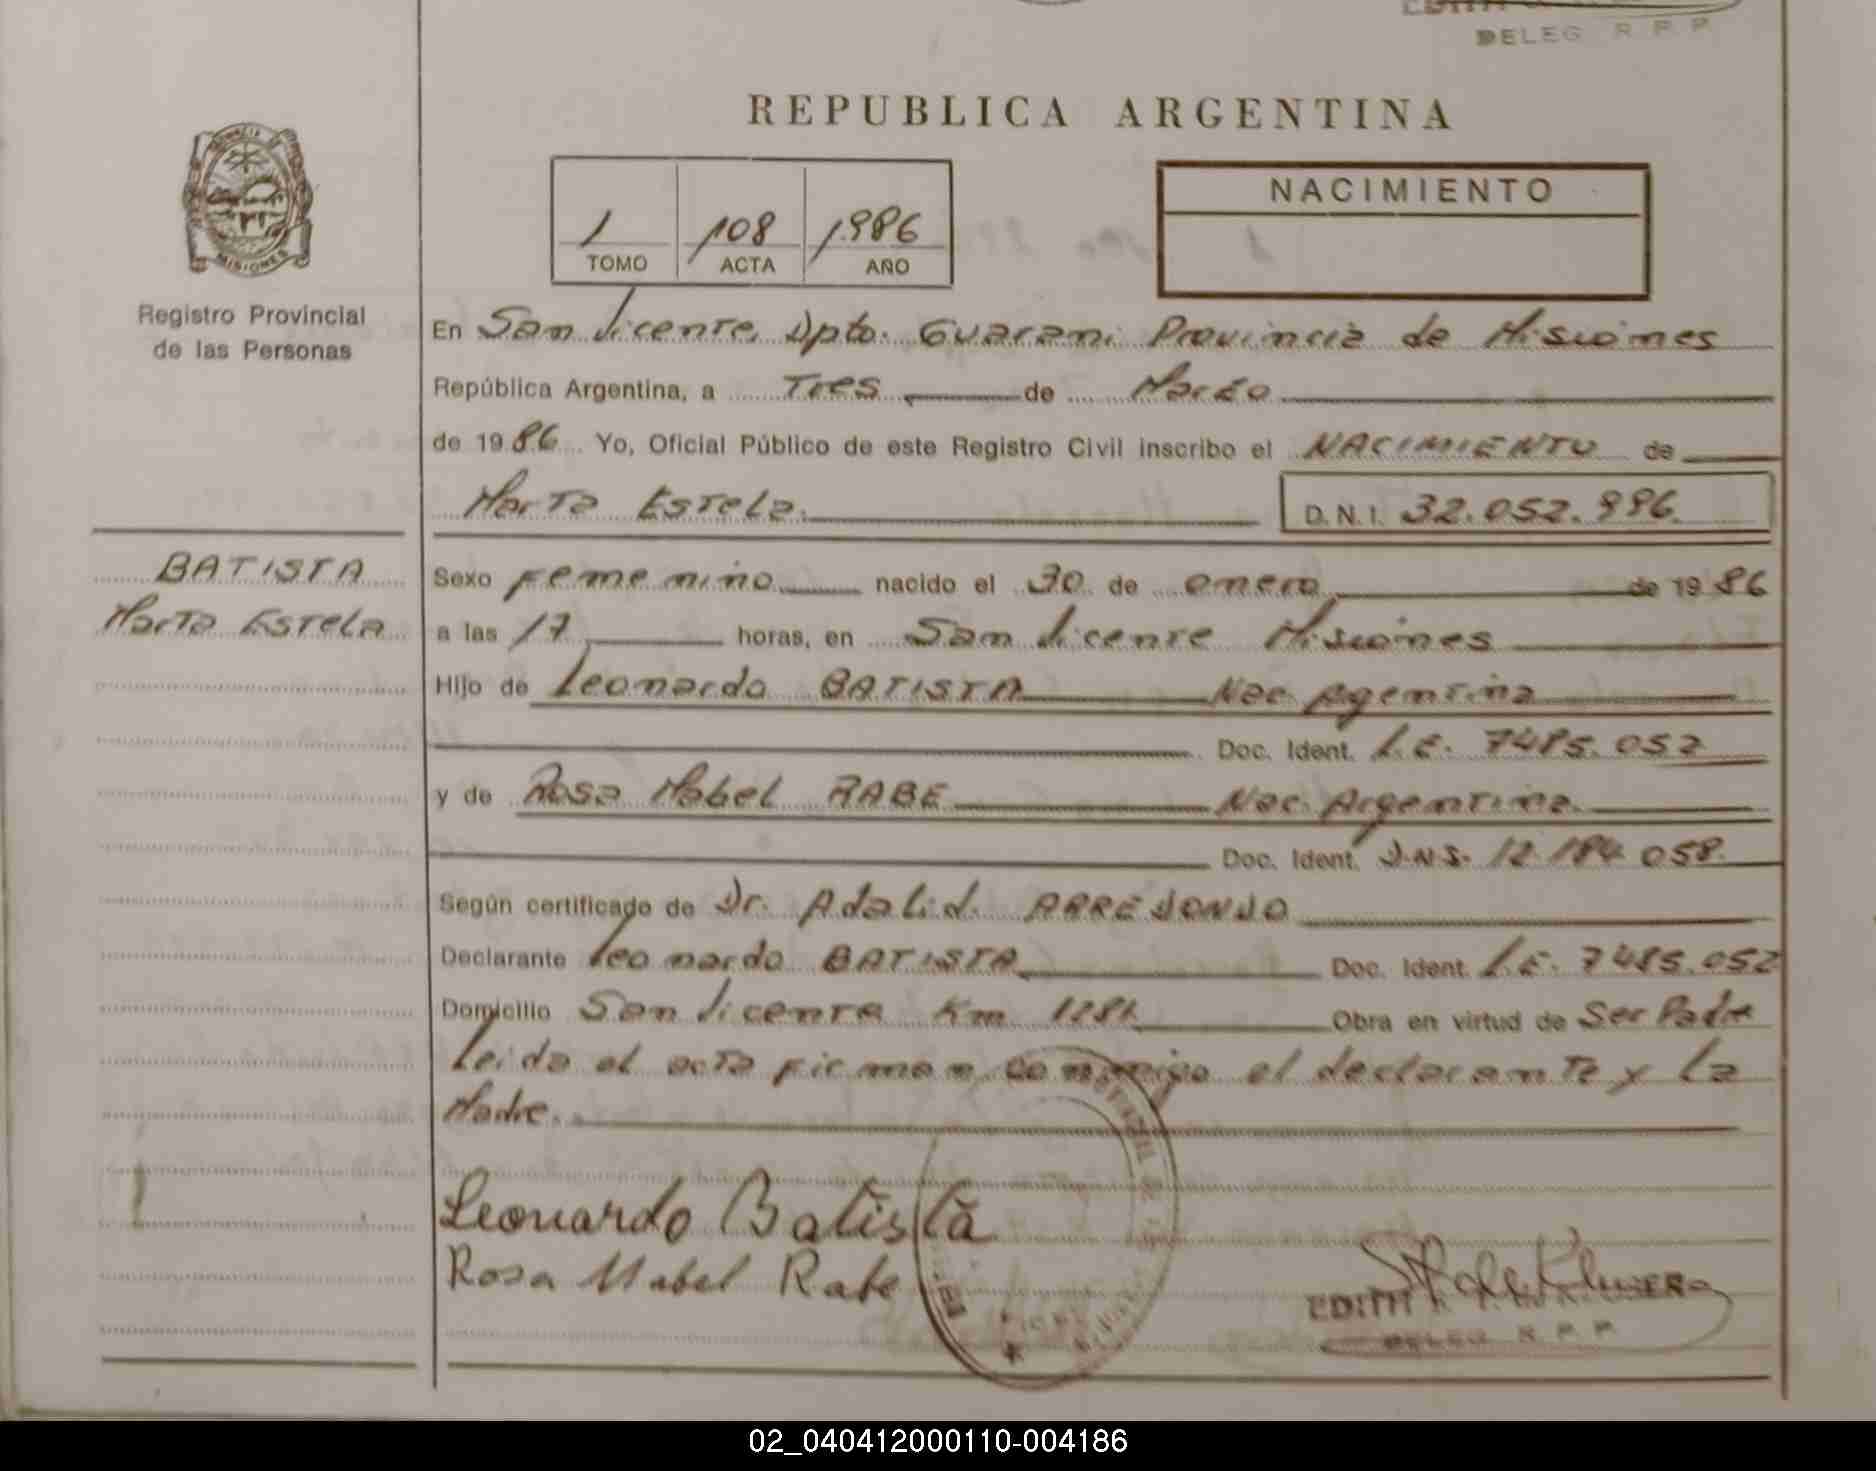 DELEG R. P. P.
REPUBLICA ARGENTINA
PROVINCIA DE
MISIONES
Registro Provincial
de las Personas
1 108 1986
TOMO ACTA AÑO
NACIMIENTO
En San Vicente, Dpto. Guarani Provincia de Misiones
República Argentina, a Tres de Marzo
de 1986 Yo, Oficial Público de este Registro Civil inscribo el NACIMIENTO de
Marta Estela. D.N.I. 32.052.996.
BATISTA
Marta Estela
Sexo femenino nacido el 30 de enero de 1986
a las 17 horas, en San Vicente Misiones
Hijo de Leonardo BATISTA Nac. Agentina
Doc. Ident. L.E. 7485.052
y de Rosa Mabel RABE Nac. Argentina.
Doc. Ident. D.N.I. 12.184.058.
Según certificado de Dr. Adalid. ARREDONDO
Declarante Leonardo BATISTA Doc. Ident. L.E. 7485.052
Domicilio San Vicente Km 1281 Obra en virtud de Ser Padre
Leida el acta firman conmigo el declarante y la
Madre.
Leonardo Batista
Rosa Mabel Rabe
EDITH
DELEG R. P. P.
02_040412000110-004186